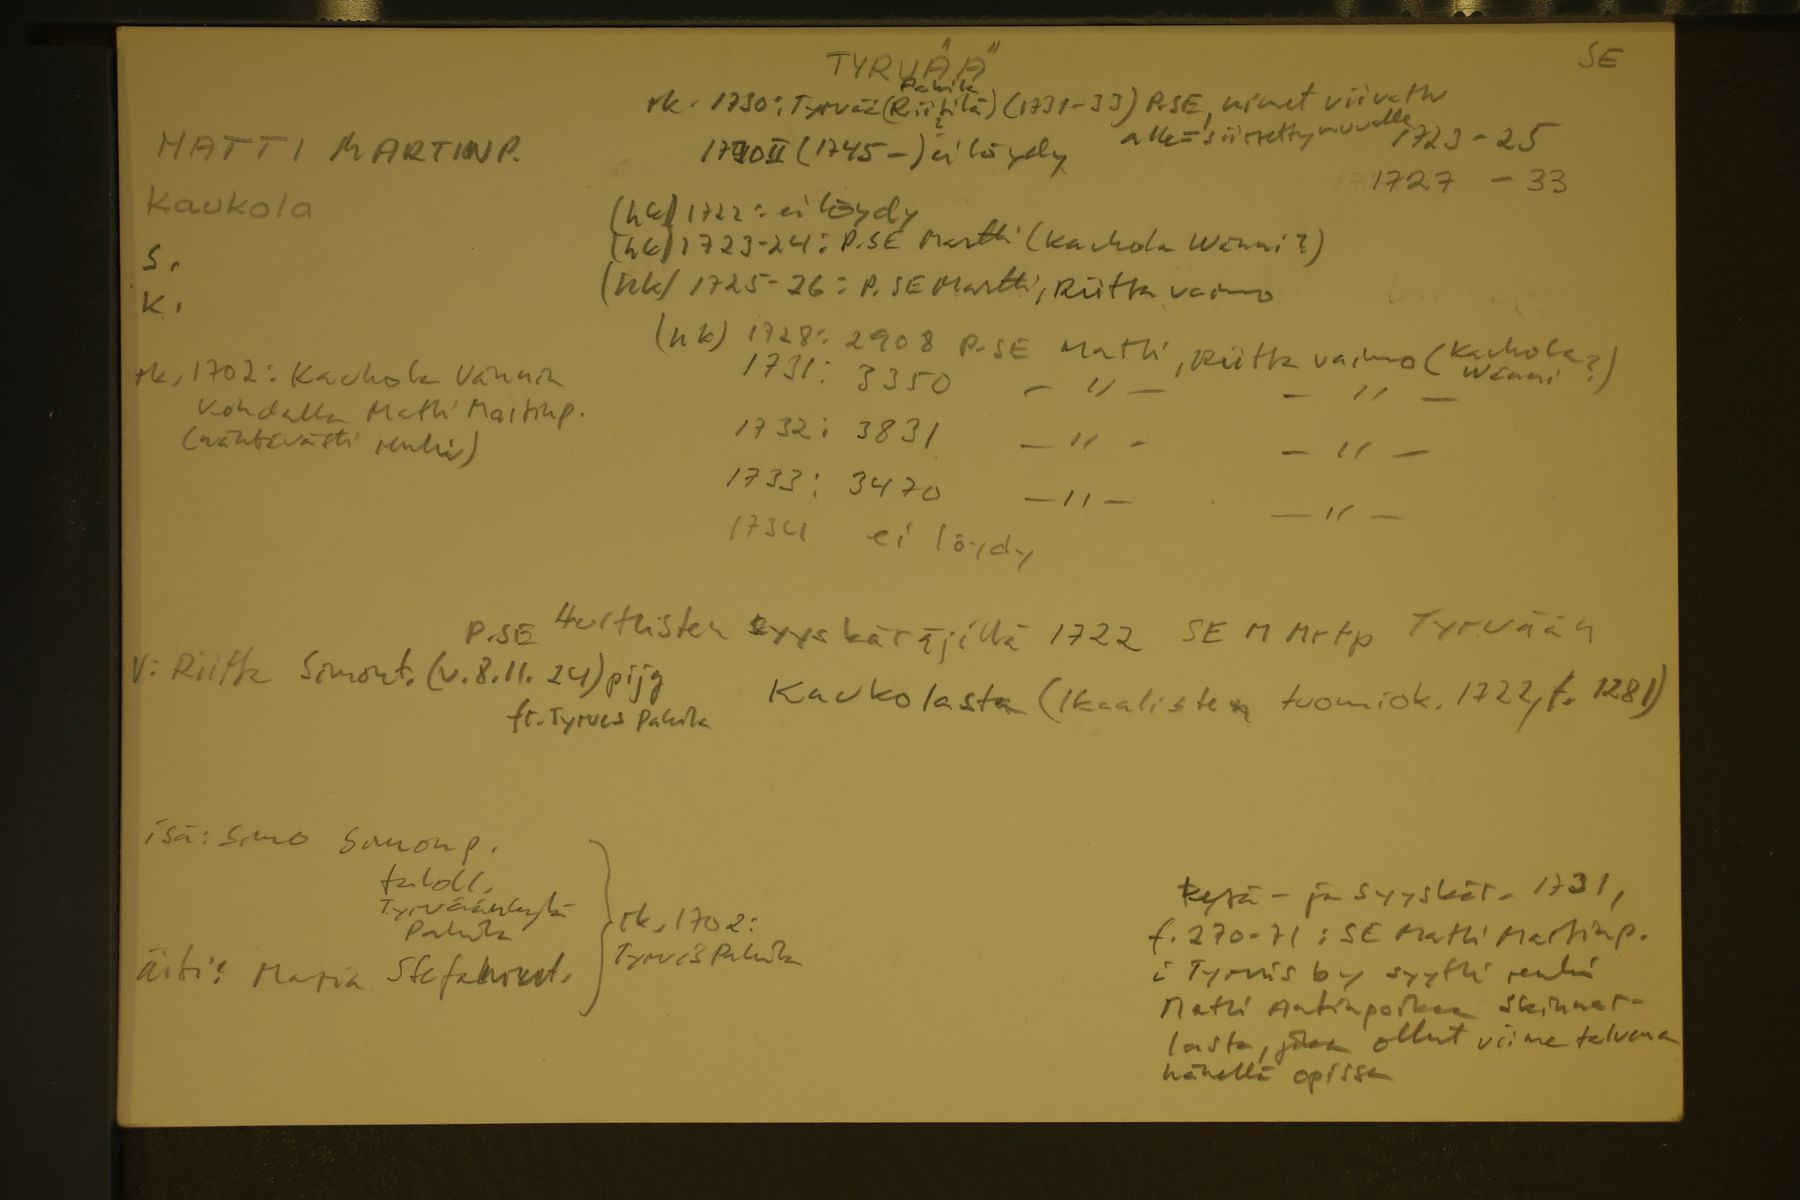 TYRVÄÄ
SE
Pahila
rk. 1730: Tyrvää (Riitilä) (1731-33) P.SE, nimet viivattu
?
alle = siirretty muualle
MATTI MARTINP.
1740 II (1745 -) ei löydy
1723 - 25
1727 - 33
Kaukola
(hk) 1722: ei löydy
(hk) 1723-24: P.SE Martti (Kaukola Wänni?)
S.
(hk) 1725-26: P.SE Martti, Riitta vaimo
K.
(hk) 1728: 2908 P.SE Matti, Riitta vaimo (Kaukola Wänni?)
1731: 3350 - " - - " -
rk, 1702: Kaukola Vännin
kohdalla Matti Martinp.
(nähtävästi renki)
1732: 3831 - " - - " -
1733: 3470 - " - - " -
1734 ei löydy
P.SE Huittisten syyskäräjillä 1722 SE M Mrtp Tyrvään
Kaukolasta (Ikaalisten tuomiok. 1722, f. 1281)
V: Riitta Simont. (v. 8.11. 24) pijg
fr. Tyrvis Pahila
isä: Simo Simonp.
taloll.
Tyrväänkylä
Pahila
äiti: Maria Stefanint.
rk, 1702:
Tyrvis Pahila
kesä- ja syyskär. 1731,
f. 270-71: SE Matti Martinp.
i Tyrvis by syytti renki
Matti Antinpoikaa Skinnar-
lasta, joka ollut viime talvena
hänellä opissa